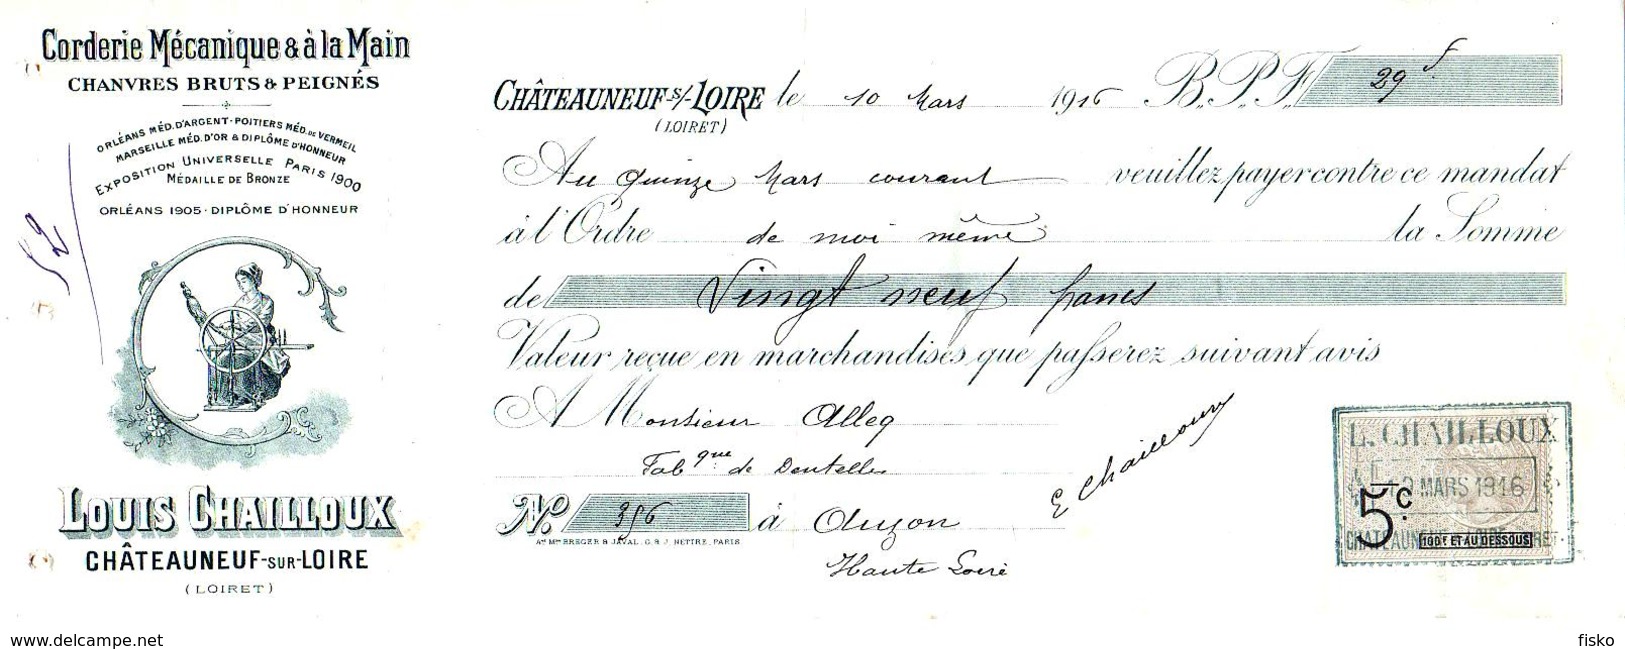 Corderie Mécanique & à la Main
CHANVRES BRUTS & PEIGNÉS
ORLÉANS MÉD. D'ARGENT - POITIERS MÉD. DE VERMEIL
MARSEILLE MÉD. D'OR & DIPLÔME D'HONNEUR
EXPOSITION UNIVERSELLE PARIS 1900
MÉDAILLE DE BRONZE
ORLÉANS 1905 - DIPLÔME D'HONNEUR
52
LOUIS CHAILLOUX
CHÂTEAUNEUF-SUR-LOIRE
(LOIRET)
CHÂTEAUNEUF-S/-LOIRE le 10 Mars 1916 B.P.F. 29 f
(LOIRET)
Au quinze Mars courant veuillez payer contre ce mandat
à l'Ordre de moi même la Somme
de Vingt neuf francs
Valeur reçue en marchandises que passerez suivant avis
A Monsieur Alleq
Fabque de Dentelles
E Chailloux
No. 356 à Auzon
ATRS MMES BREGER & JAVAL, G. & J. NETTRE, PARIS
Haute Loire
L. CHAILLOUX
MARS 1916
5c.
100f ET AU DESSOUS
www.delcampe.net
fisko